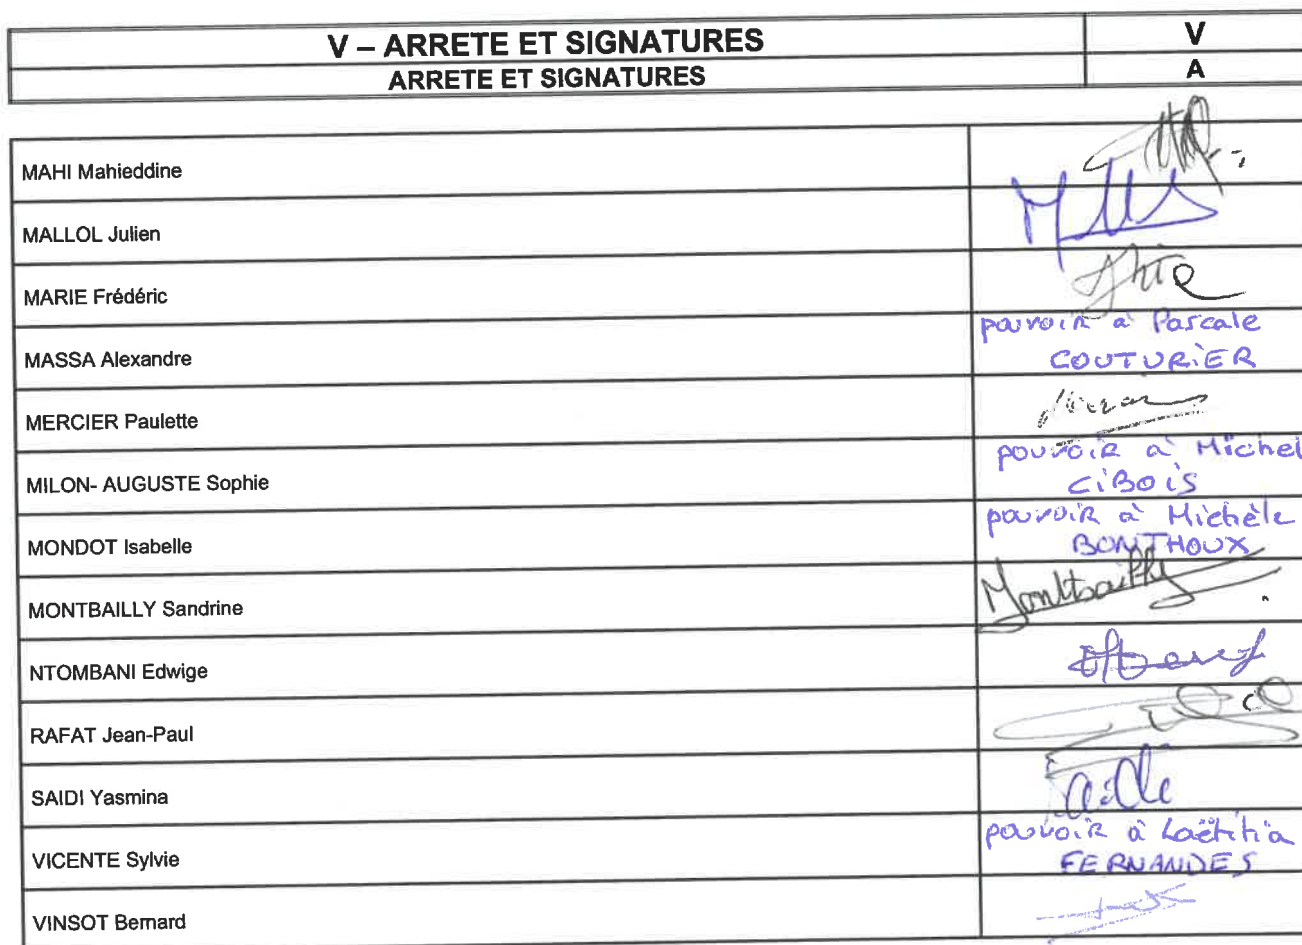 V – ARRETE ET SIGNATURES V
ARRETE ET SIGNATURES A
MAHI Mahieddine
MALLOL Julien
MARIE Frédéric
MASSA Alexandre
pouvoir à Pascale
COUTURIER
MERCIER Paulette
MILON- AUGUSTE Sophie
pouvoir à Michel
CIBOIS
MONDOT Isabelle
pouvoir à Michèle
BONTHOUX
MONTBAILLY Sandrine
Montbailly
NTOMBANI Edwige
RAFAT Jean-Paul
SAIDI Yasmina
VICENTE Sylvie
pouvoir à Laëtitia
FERNANDES
VINSOT Bernard